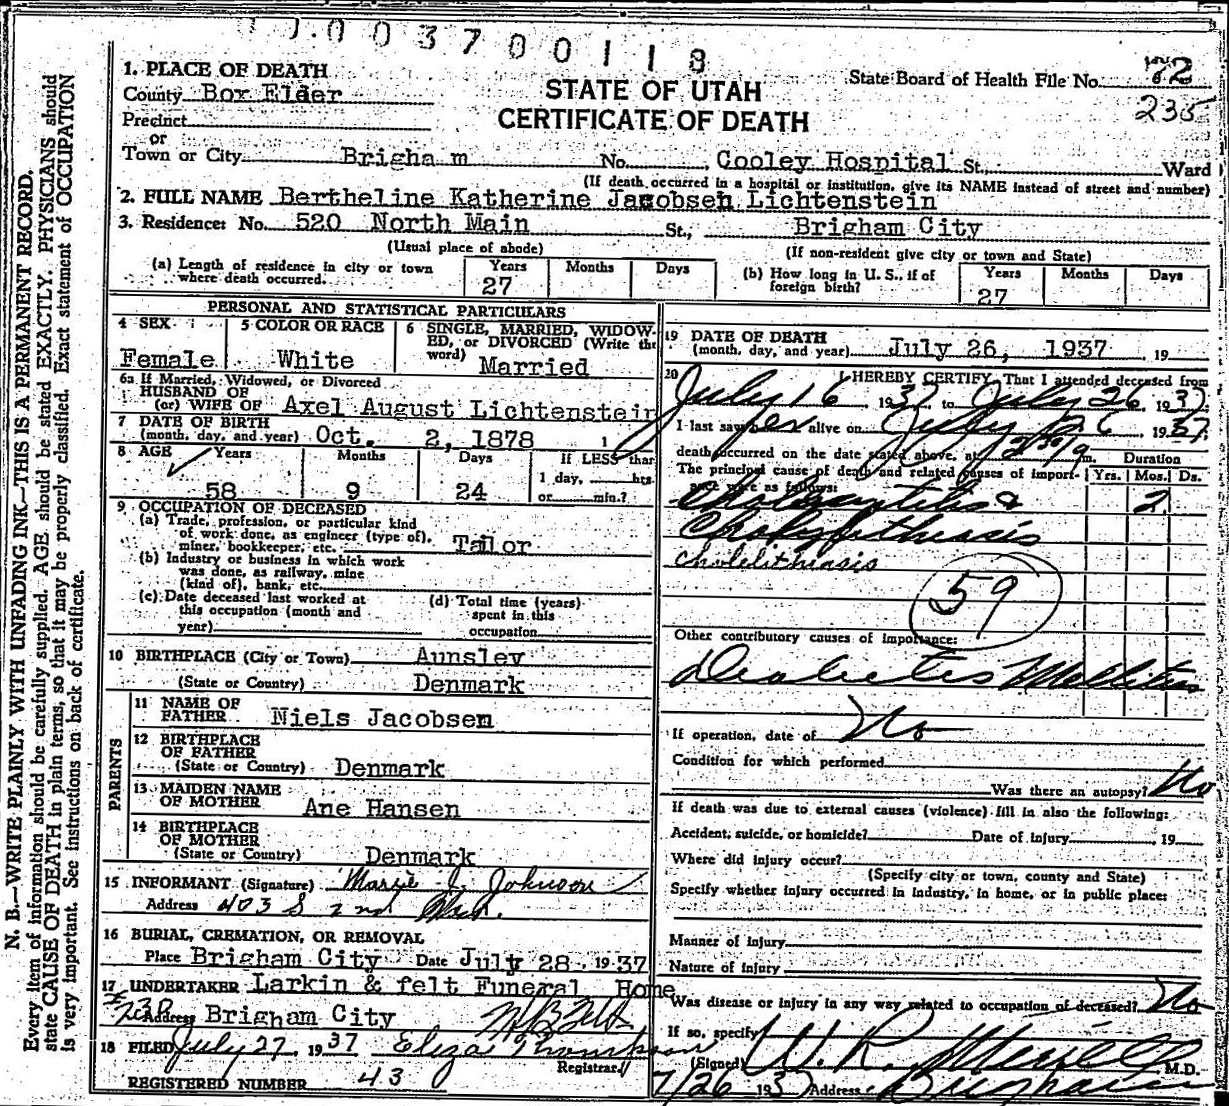 003700118
STATE OF UTAH
CERTIFICATE OF DEATH
State Board of Health File No. 52
235
1. PLACE OF DEATH
County Box Elder
Precinct
or
Town or City Brigham No. Cooley Hospital St., Ward
(If death occurred in a hospital or institution, give its NAME instead of street and number)
2. FULL NAME Bertheline Katherine Jacobsen Lichtenstein
3. Residence: No. 520 North Main St., Brigham City
(Usual place of abode) (If non-resident give city or town and State)
(a) Length of residence in city or town where death occurred. Years 27 Months Days
(b) How long in U. S., if of foreign birth? Years 27 Months Days
PERSONAL AND STATISTICAL PARTICULARS
4 SEX Female
5 COLOR OR RACE White
6 SINGLE, MARRIED, WIDOWED, or DIVORCED (Write the word) Married
6a If Married, Widowed, or Divorced
HUSBAND OF
(or) WIFE OF Axel August Lichtenstein
7 DATE OF BIRTH
(month, day, and year) Oct. 2, 1878
8 AGE Years Months Days If LESS than
1 day, hrs.
58 9 24 or min.?
9 OCCUPATION OF DECEASED
(a) Trade, profession, or particular kind
of work done, as engineer (type of),
miner, bookkeeper, etc. Tailor
(b) Industry or business in which work
was done, as railway, mine
(kind of), bank, etc.
(c) Date deceased last worked at
this occupation (month and
year)
(d) Total time (years)
spent in this
occupation
10 BIRTHPLACE (City or Town) Aunslev
(State or Country) Denmark
PARENTS
11 NAME OF
FATHER Niels Jacobsen
12 BIRTHPLACE
OF FATHER
(State or Country) Denmark
13 MAIDEN NAME
OF MOTHER Ane Hansen
14 BIRTHPLACE
OF MOTHER
(State or Country) Denmark
15 INFORMANT (Signature) Margie J. Johnson
Address 403 S 2nd
16 BURIAL, CREMATION, OR REMOVAL
Place Brigham City Date July 28, 1937
17 UNDERTAKER Larkin & felt Funeral Home
Address Brigham City
18 FILED July 27, 1937 Eliza Thompson
Registrar.
REGISTERED NUMBER 43
19 DATE OF DEATH
(month, day, and year) July 26, 1937 19
20 I HEREBY CERTIFY, That I attended deceased from
July 16 1937, to July 26, 1937.
I last saw alive on July 26 1937
death occurred on the date stated above, at m. Duration
The principal cause of death and related causes of importance were as follows: Yrs. Mos. Ds.
Cholecystitis & 2
cholelithiasis
59
Other contributory causes of importance:
Diabetes Mellitus
If operation, date of No
Condition for which performed
Was there an autopsy? No
If death was due to external causes (violence) fill in also the following:
Accident, suicide, or homicide? Date of injury , 19
Where did injury occur?
(Specify city or town, county and State)
Specify whether injury occurred in industry, in home, or in public place:
Manner of injury
Nature of injury
Was disease or injury in any way related to occupation of deceased? No
If so, specify
(Signed) W. R. Merrell M.D.
7/26 1937 Address Brigham
N. B.—WRITE PLAINLY WITH UNFADING INK—THIS IS A PERMANENT RECORD.
Every item of information should be carefully supplied. AGE should be stated EXACTLY. PHYSICIANS should
state CAUSE OF DEATH in plain terms, so that it may be properly classified. Exact statement of OCCUPATION
is very important. See instructions on back of certificate.